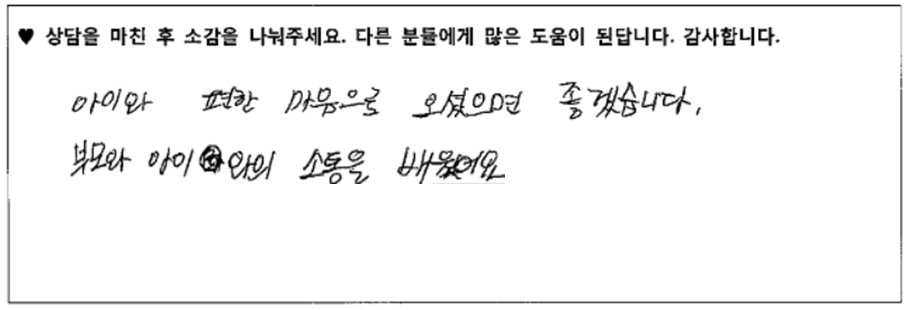 ♥ 상담을 마친 후 소감을 나눠주세요. 다른 분들에게 많은 도움이 된답니다. 감사합니다.
아이와 편한 마음으로 오셨으면 좋겠습니다.
부모와 아이와의 소통을 배웠어요